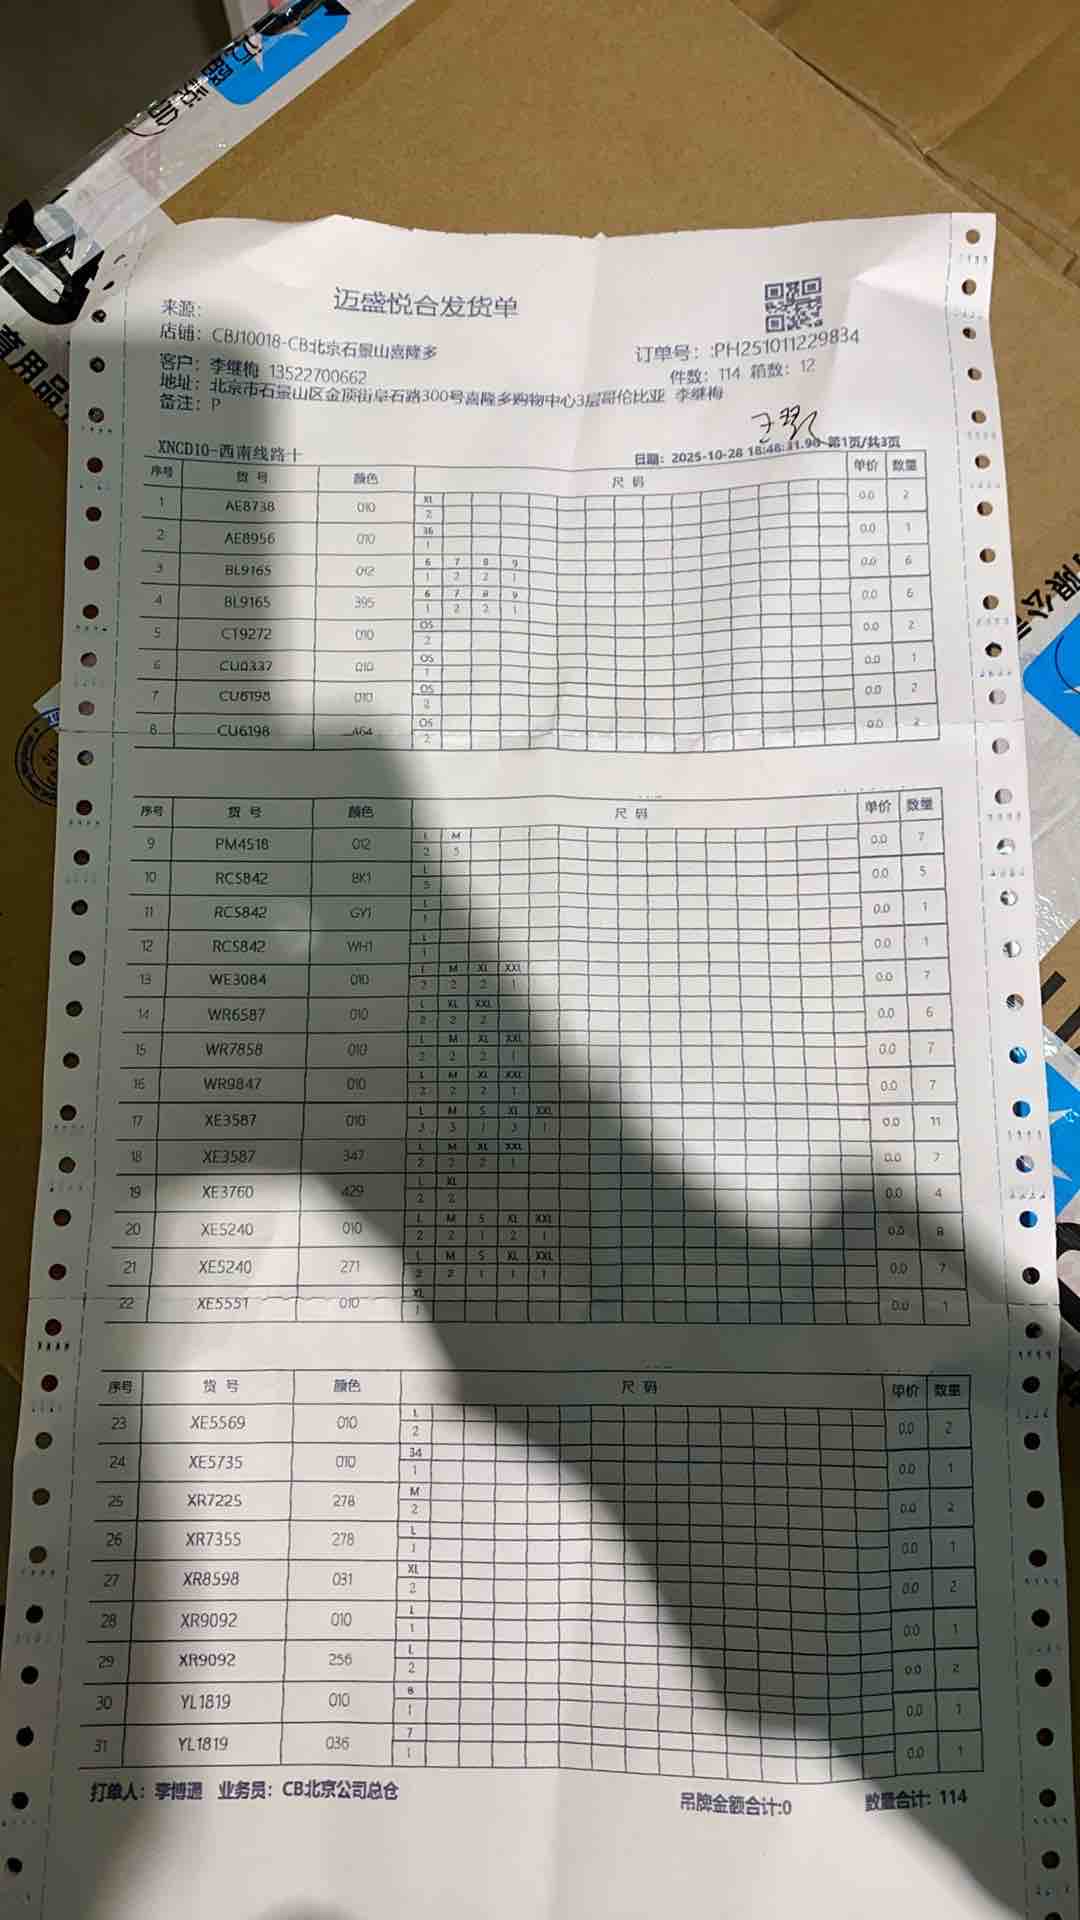 迈盛悦合发货单
来源：
店铺：CBJ10018-CB北京石景山喜隆多
订单号：:PH251011229834
客户：李继梅 13522700662
件数：114 箱数：12
地址：北京市石景山区金顶街阜石路300号喜隆多购物中心3层哥伦比亚 李继梅
备注：P
XNCD10-西南线路十
日期：2025-10-28 18:46:31.90 第1页/共3页
序号 货 号 颜色 尺 码 单价 数量
1 AE8738 010 XL 0.0 2
2
2 AE8956 010 36 0.0 1
1
3 BL9165 012 6 7 8 9 0.0 6
1 2 2 1
4 BL9165 395 6 7 8 9 0.0 6
1 2 2 1
5 CT9272 010 OS 0.0 2
2
6 CU0337 010 OS 0.0 1
1
7 CU6198 010 OS 0.0 2
2
8 CU6198 464 OS 0.0 2
2
序号 货 号 颜色 尺 码 单价 数量
9 PM4518 012 L M 0.0 7
2 5
10 RCS842 BK1 L 0.0 5
5
11 RCS842 GY1 L 0.0 1
1
12 RCS842 WH1 L 0.0 1
1
13 WE3084 010 L M XL XXL 0.0 7
2 2 2 1
14 WR6587 010 L XL XXL 0.0 6
2 2 2
15 WR7858 010 L M XL XXL 0.0 7
2 2 2 1
16 WR9847 010 L M XL XXL 0.0 7
2 2 2 1
17 XE3587 010 L M S XL XXL 0.0 11
3 3 1 3 1
18 XE3587 347 L M XL XXL 0.0 7
2 2 2 1
19 XE3760 429 L XL 0.0 4
2 2
20 XE5240 010 L M S XL XXL 0.0 8
2 2 1 2 1
21 XE5240 271 L M S XL XXL 0.0 7
2 2 1 1 1
22 XE5551 010 XL 0.0 1
1
序号 货 号 颜色 尺 码 单价 数量
23 XE5569 010 L 0.0 2
2
24 XE5735 010 34 0.0 1
1
25 XR7225 278 M 0.0 2
2
26 XR7355 278 L 0.0 1
1
27 XR8598 031 XL 0.0 2
2
28 XR9092 010 L 0.0 1
1
29 XR9092 256 L 0.0 2
2
30 YL1819 010 8 0.0 1
1
31 YL1819 036 7 0.0 1
1
打单人：李博通 业务员：CB北京公司总仓
吊牌金额合计:0
数量合计：114
育用品
有限公